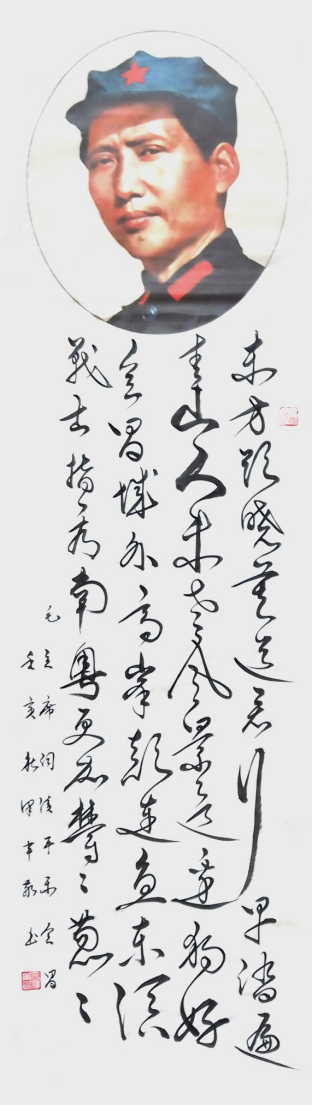 东方欲晓莫道君行早踏遍
青山人未老风景这边独好
会昌城外高峰颠连直东溟
戰士指看南粤更加鬱々葱々
毛主席词清平乐会昌
秋